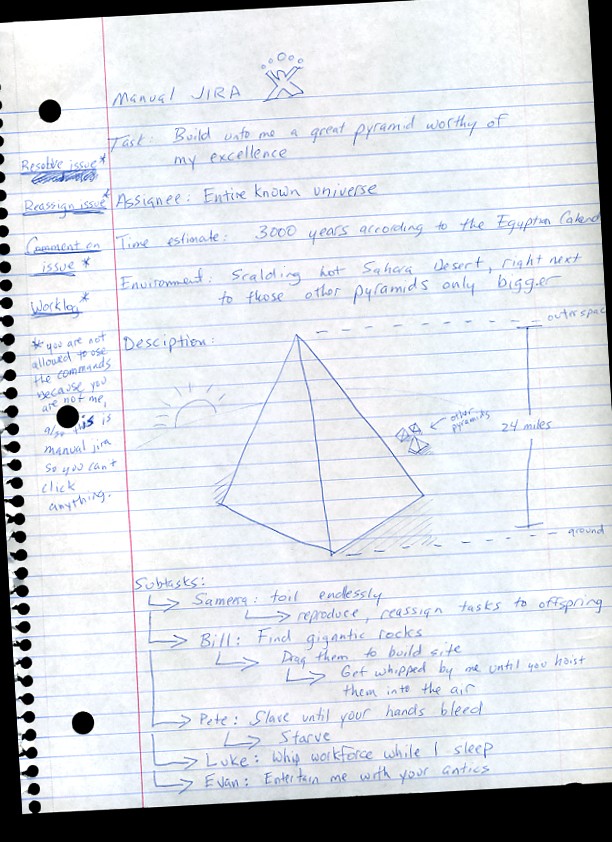 Manual JIRA
Task: Build unto me a great pyramid worthy of
my excellence
Assignee: Entire known universe
Time estimate: 3000 years according to the Egyptian Calend
Environment: Scalding hot Sahara Desert, right next
to those other pyramids only bigger
Desciption:
Resolve issue*
Reassign issue*
Comment on
issue *
Worklog*
* you are not
allowed to use
the commands
because you
are not me,
also this is
manual jira
so you can't
click
anything.
outer spac
other
pyramids
24 miles
ground
Subtasks:
Samena: toil endlessly
reproduce, reassign tasks to offspring
Bill: Find gigantic rocks
Drag them to build site
Get whipped by me until you hoist
them into the air
Pete: Slave until your hands bleed
Starve
Luke: Whip workforce while I sleep
Evan: Entertain me with your antics